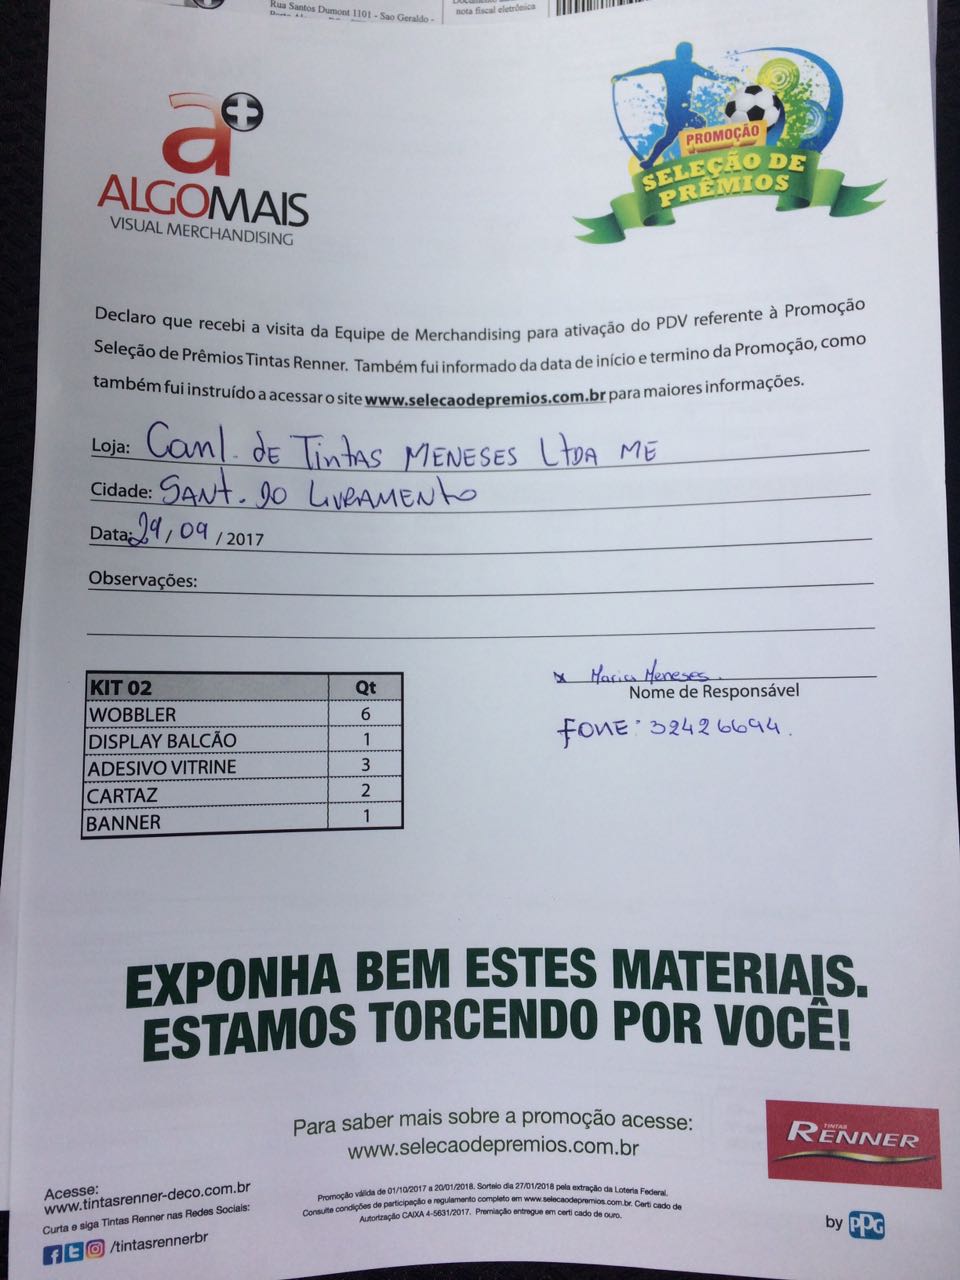 Rua Santos Dumont 1101 - Sao Geraldo -
nota fiscal eletrônica
a+
ALGOMAIS
VISUAL MERCHANDISING
PROMOÇÃO
SELEÇÃO DE
PRÊMIOS
Declaro que recebi a visita da Equipe de Merchandising para ativação do PDV referente à Promoção
Seleção de Prêmios Tintas Renner. Também fui informado da data de início e termino da Promoção, como
também fui instruído a acessar o site www.selecaodepremios.com.br para maiores informações.
Loja: DE TINTAS MENESES LTDA ME
Cidade: SANT. DO LIVRAMENTO
Data: 29/09/2017
Observações:
x Maria Meneses
Nome de Responsável
FONE: 32426694.
KIT 02 Qt
WOBBLER 6
DISPLAY BALCÃO 1
ADESIVO VITRINE 3
CARTAZ 2
BANNER 1
EXPONHA BEM ESTES MATERIAIS.
ESTAMOS TORCENDO POR VOCÊ!
Para saber mais sobre a promoção acesse:
www.selecaodepremios.com.br
TINTAS
RENNER
by PPG
Acesse:
www.tintasrenner-deco.com.br
Curta e siga Tintas Renner nas Redes Sociais:
/tintasrennerbr
Promoção válida de 01/10/2017 a 20/01/2018. Sorteio dia 27/01/2018 pela extração da Loteria Federal.
Consulte condições de participação e regulamento completo em www.selecaodepremios.com.br. Certi cado de
Autorização CAIXA 4-5631/2017. Premiação entregue em certi cado de ouro.